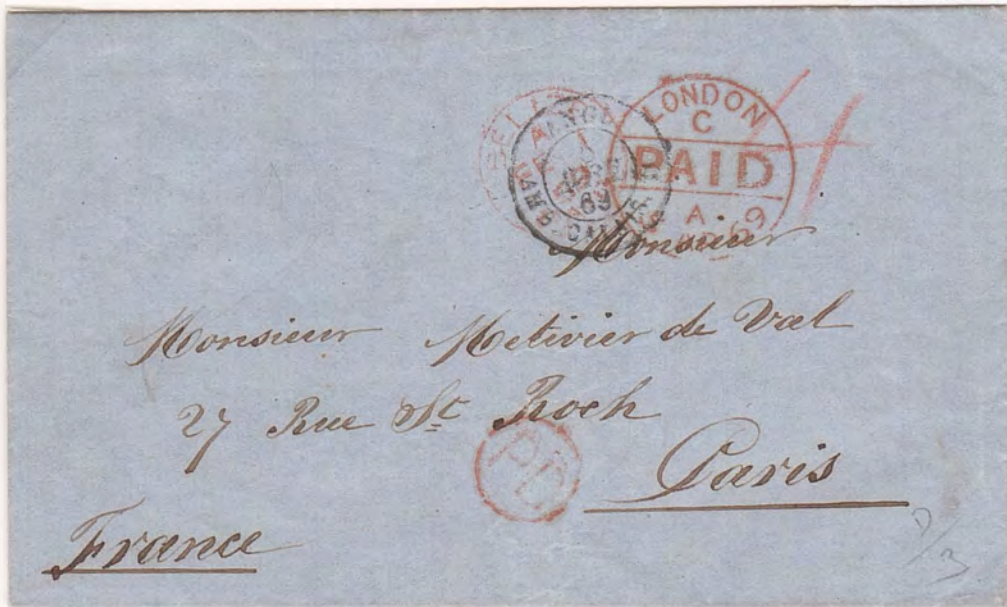 LONDON
C
PAID
A
69
ANGL
69
CALAIS
Monsieur
Monsieur Metivier de Val
27 Rue St Roch
PD
Paris
France